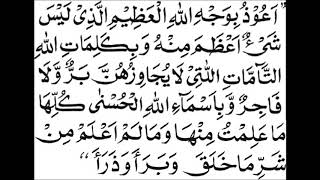 "اَعُوْذُ بِوَجْهِ اللهِ الْعَظِيْمِ الَّذِىْ لَيْسَ
شَىْءٌ اَعْظَمَ مِنْهُ وَ بِكَلِمَاتِ اللهِ
التَّامَّاتِ اللَّتِىْ لَا يُجَاوِزُهُنَّ بَرٌّ وَّلَا
فَاجِرٌ وَّ بِاَسْمَآءِ اللهِ الْحُسْنٰى كُلِّهَا
مَا عَلِمْتُ مِنْهَا وَ مَا لَمْ اَعْلَمْ مِنْ
شَرِّ مَا خَلَقَ وَ بَرَأَ وَ ذَرَأَ"